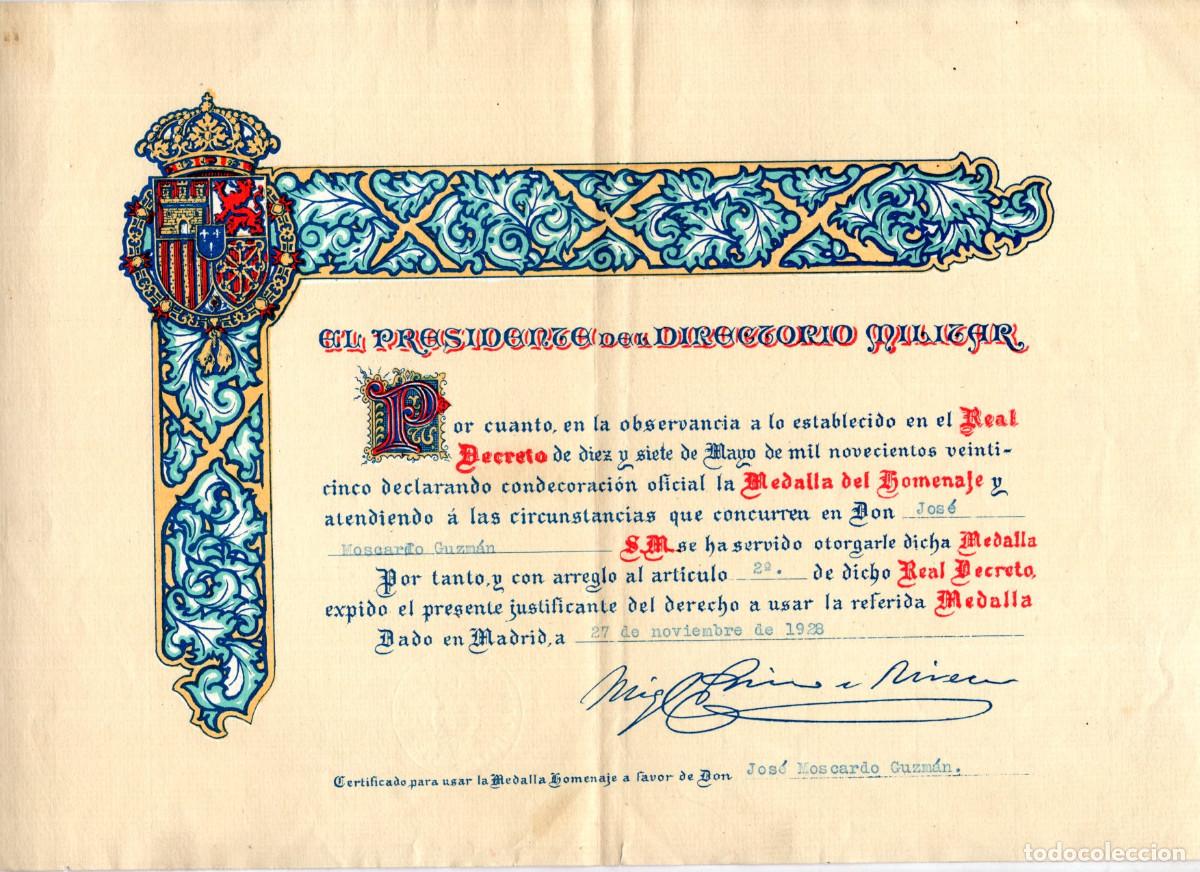 EL PRESIDENTE DEL DIRECTORIO MILITAR
Por cuanto, en la observancia a lo establecido en el Real
Decreto de diez y siete de Mayo de mil novecientos veinti-
cinco declarando condecoración oficial la Medalla del Homenaje y
atendiendo á las circunstancias que concurren en Don José
Moscardo Guzmán S.M. se ha servido otorgarle dicha Medalla
Por tanto, y con arreglo al artículo 2º. de dicho Real Decreto,
expido el presente justificante del derecho a usar la referida Medalla
Dado en Madrid, a 27 de noviembre de 1928
Miguel Primo de Rivera
Certificado para usar la Medalla Homenaje a favor de Don José Moscardo Guzmán.
todocoleccion